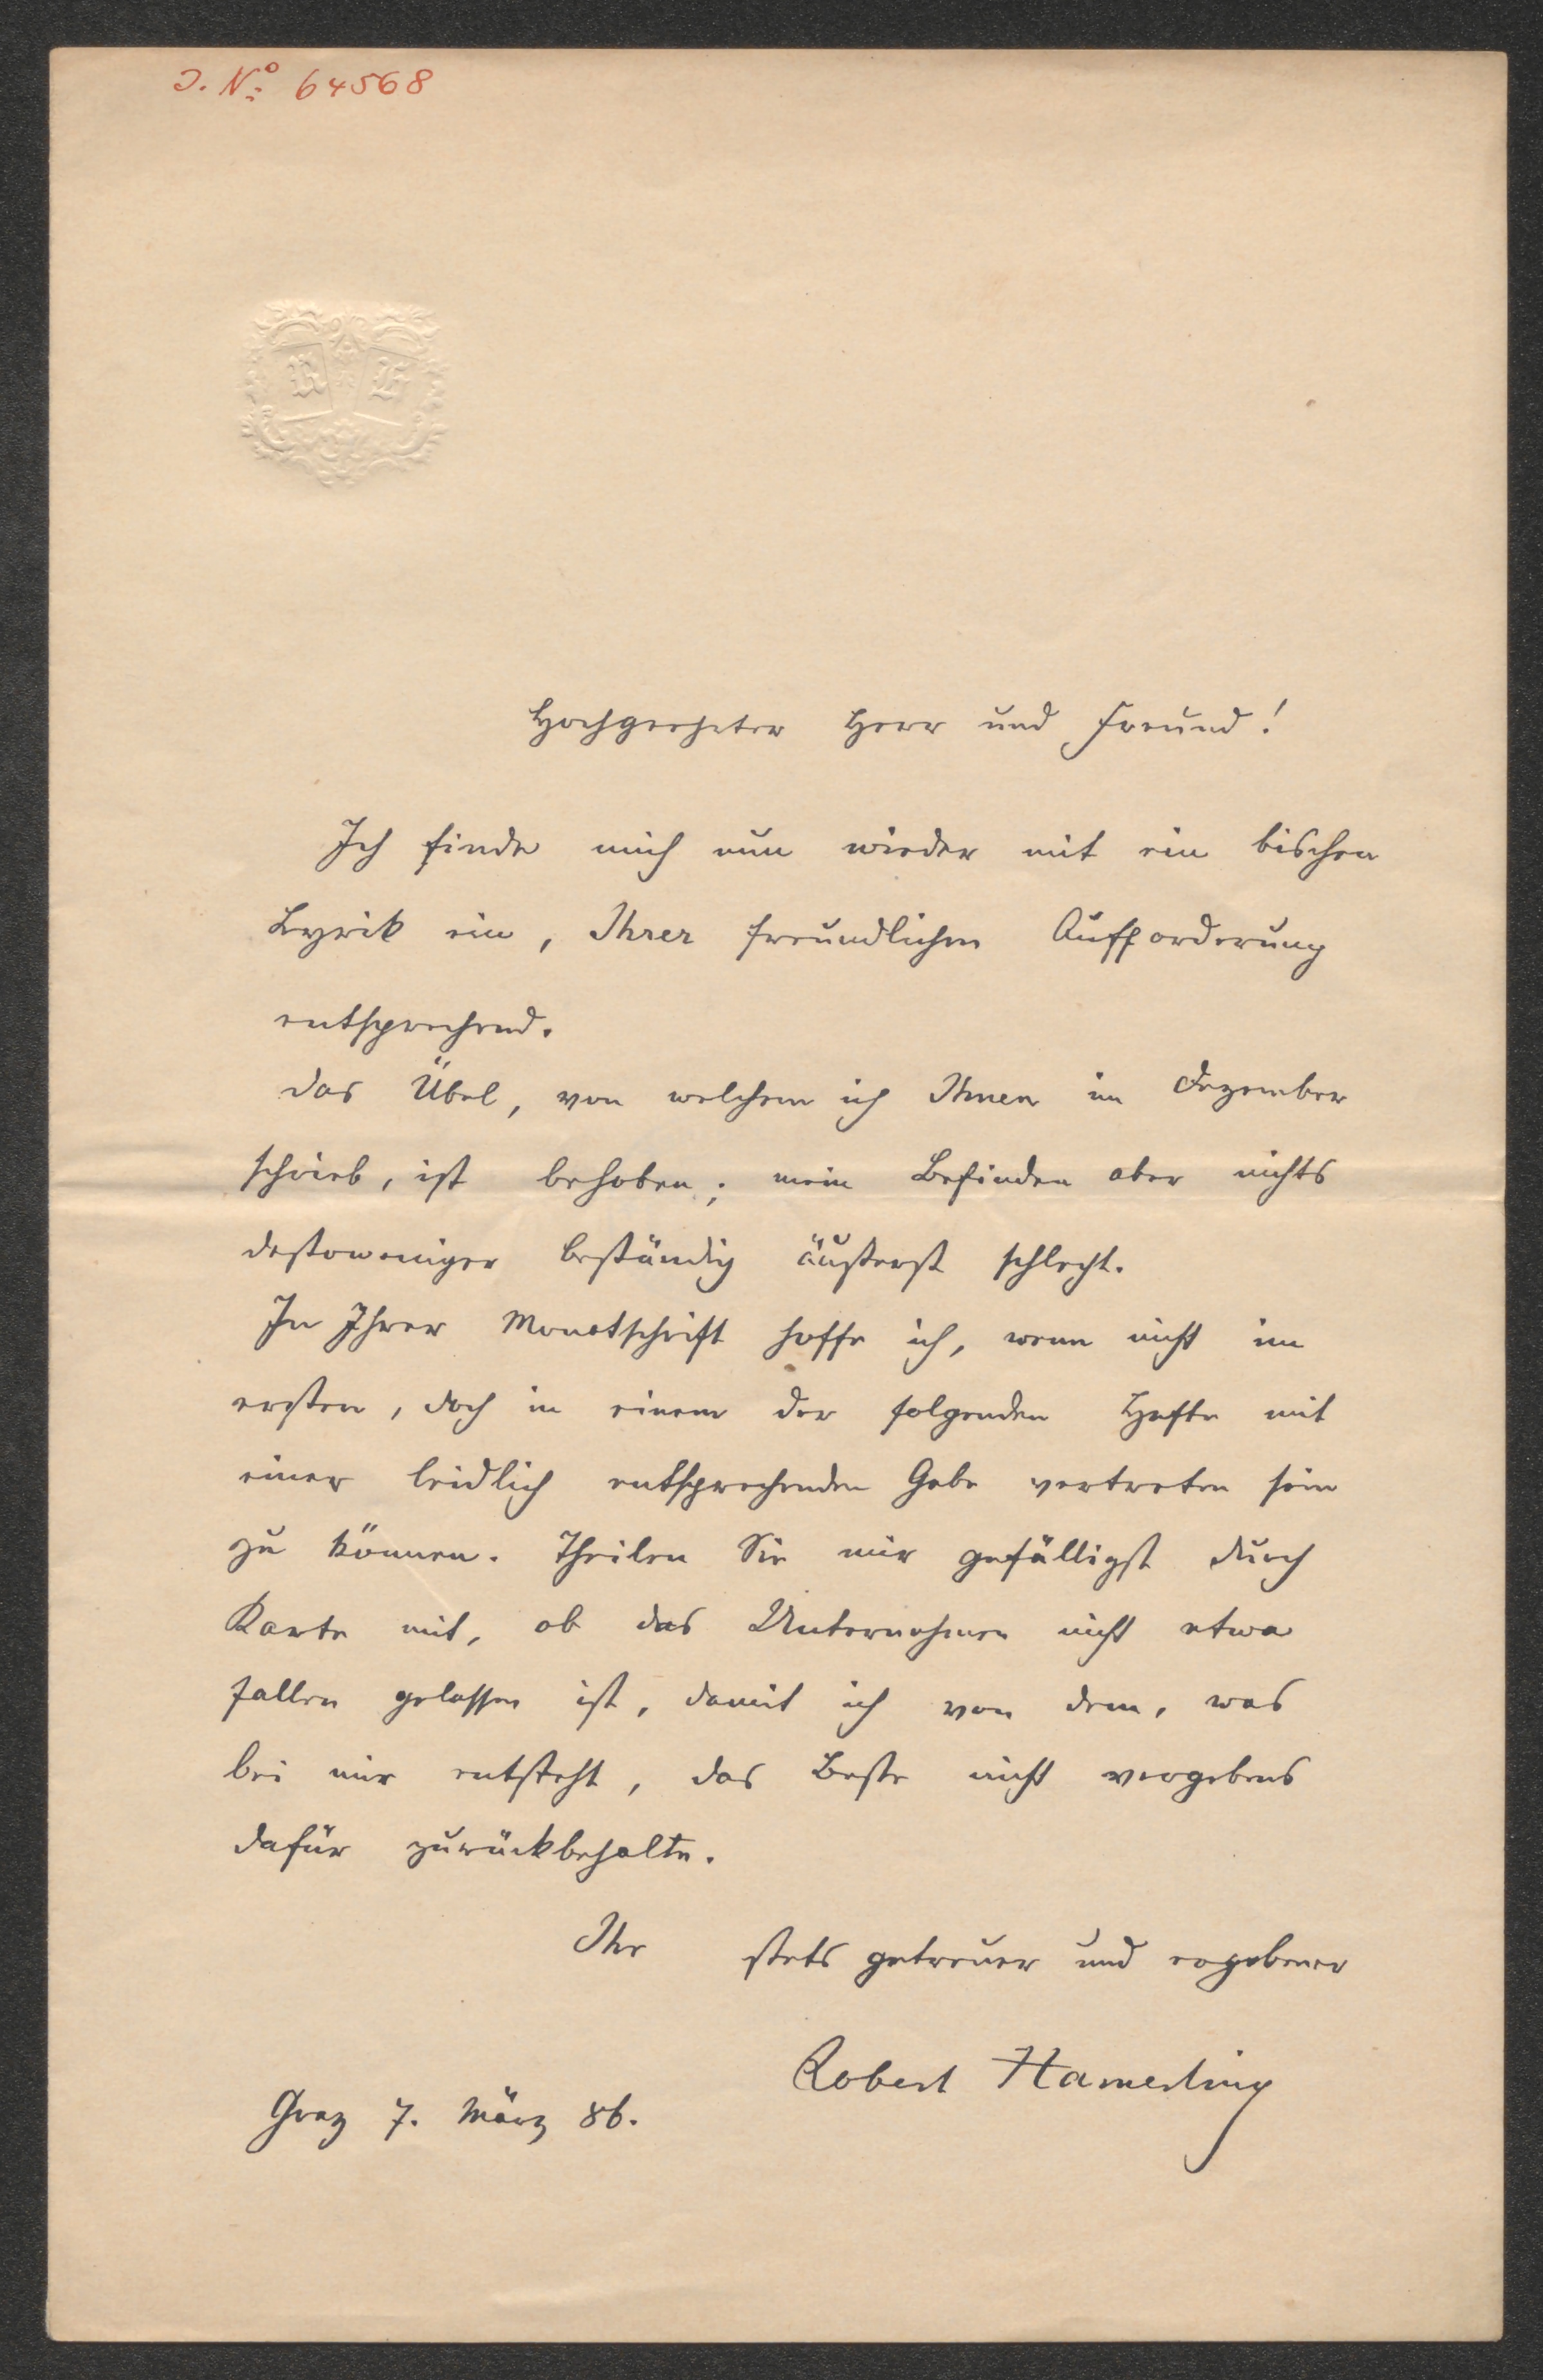 J. No: 64568
R H
Hochgeehrter Herr und Freund!
Ich finde mich nun wieder mit ein bischen
Lyrik ein, Ihrer freundlichen Aufforderung
entsprechend.
Das Übel, von welchem ich Ihnen im Dezember
schrieb, ist behoben; mein Befinden aber nichts
destoweniger beständig äußerst schlecht.
In Ihrer Monatschrift hoffe ich, wenn nicht im
ersten, doch in einem der folgenden Hefte mit
einer leidlich entsprechenden Gabe vertreten sein
zu können. Theilen Sie mir gefälligst durch
Karte mit, ob das Unternehmen nicht etwa
fallen gelassen ist, damit ich von dem, was
bei mir entsteht, das Beste nicht vergebens
dafür zurückbehalte.
Ihr stets getreuer und ergebener
Robert Hamerling
Graz 7. März 86.